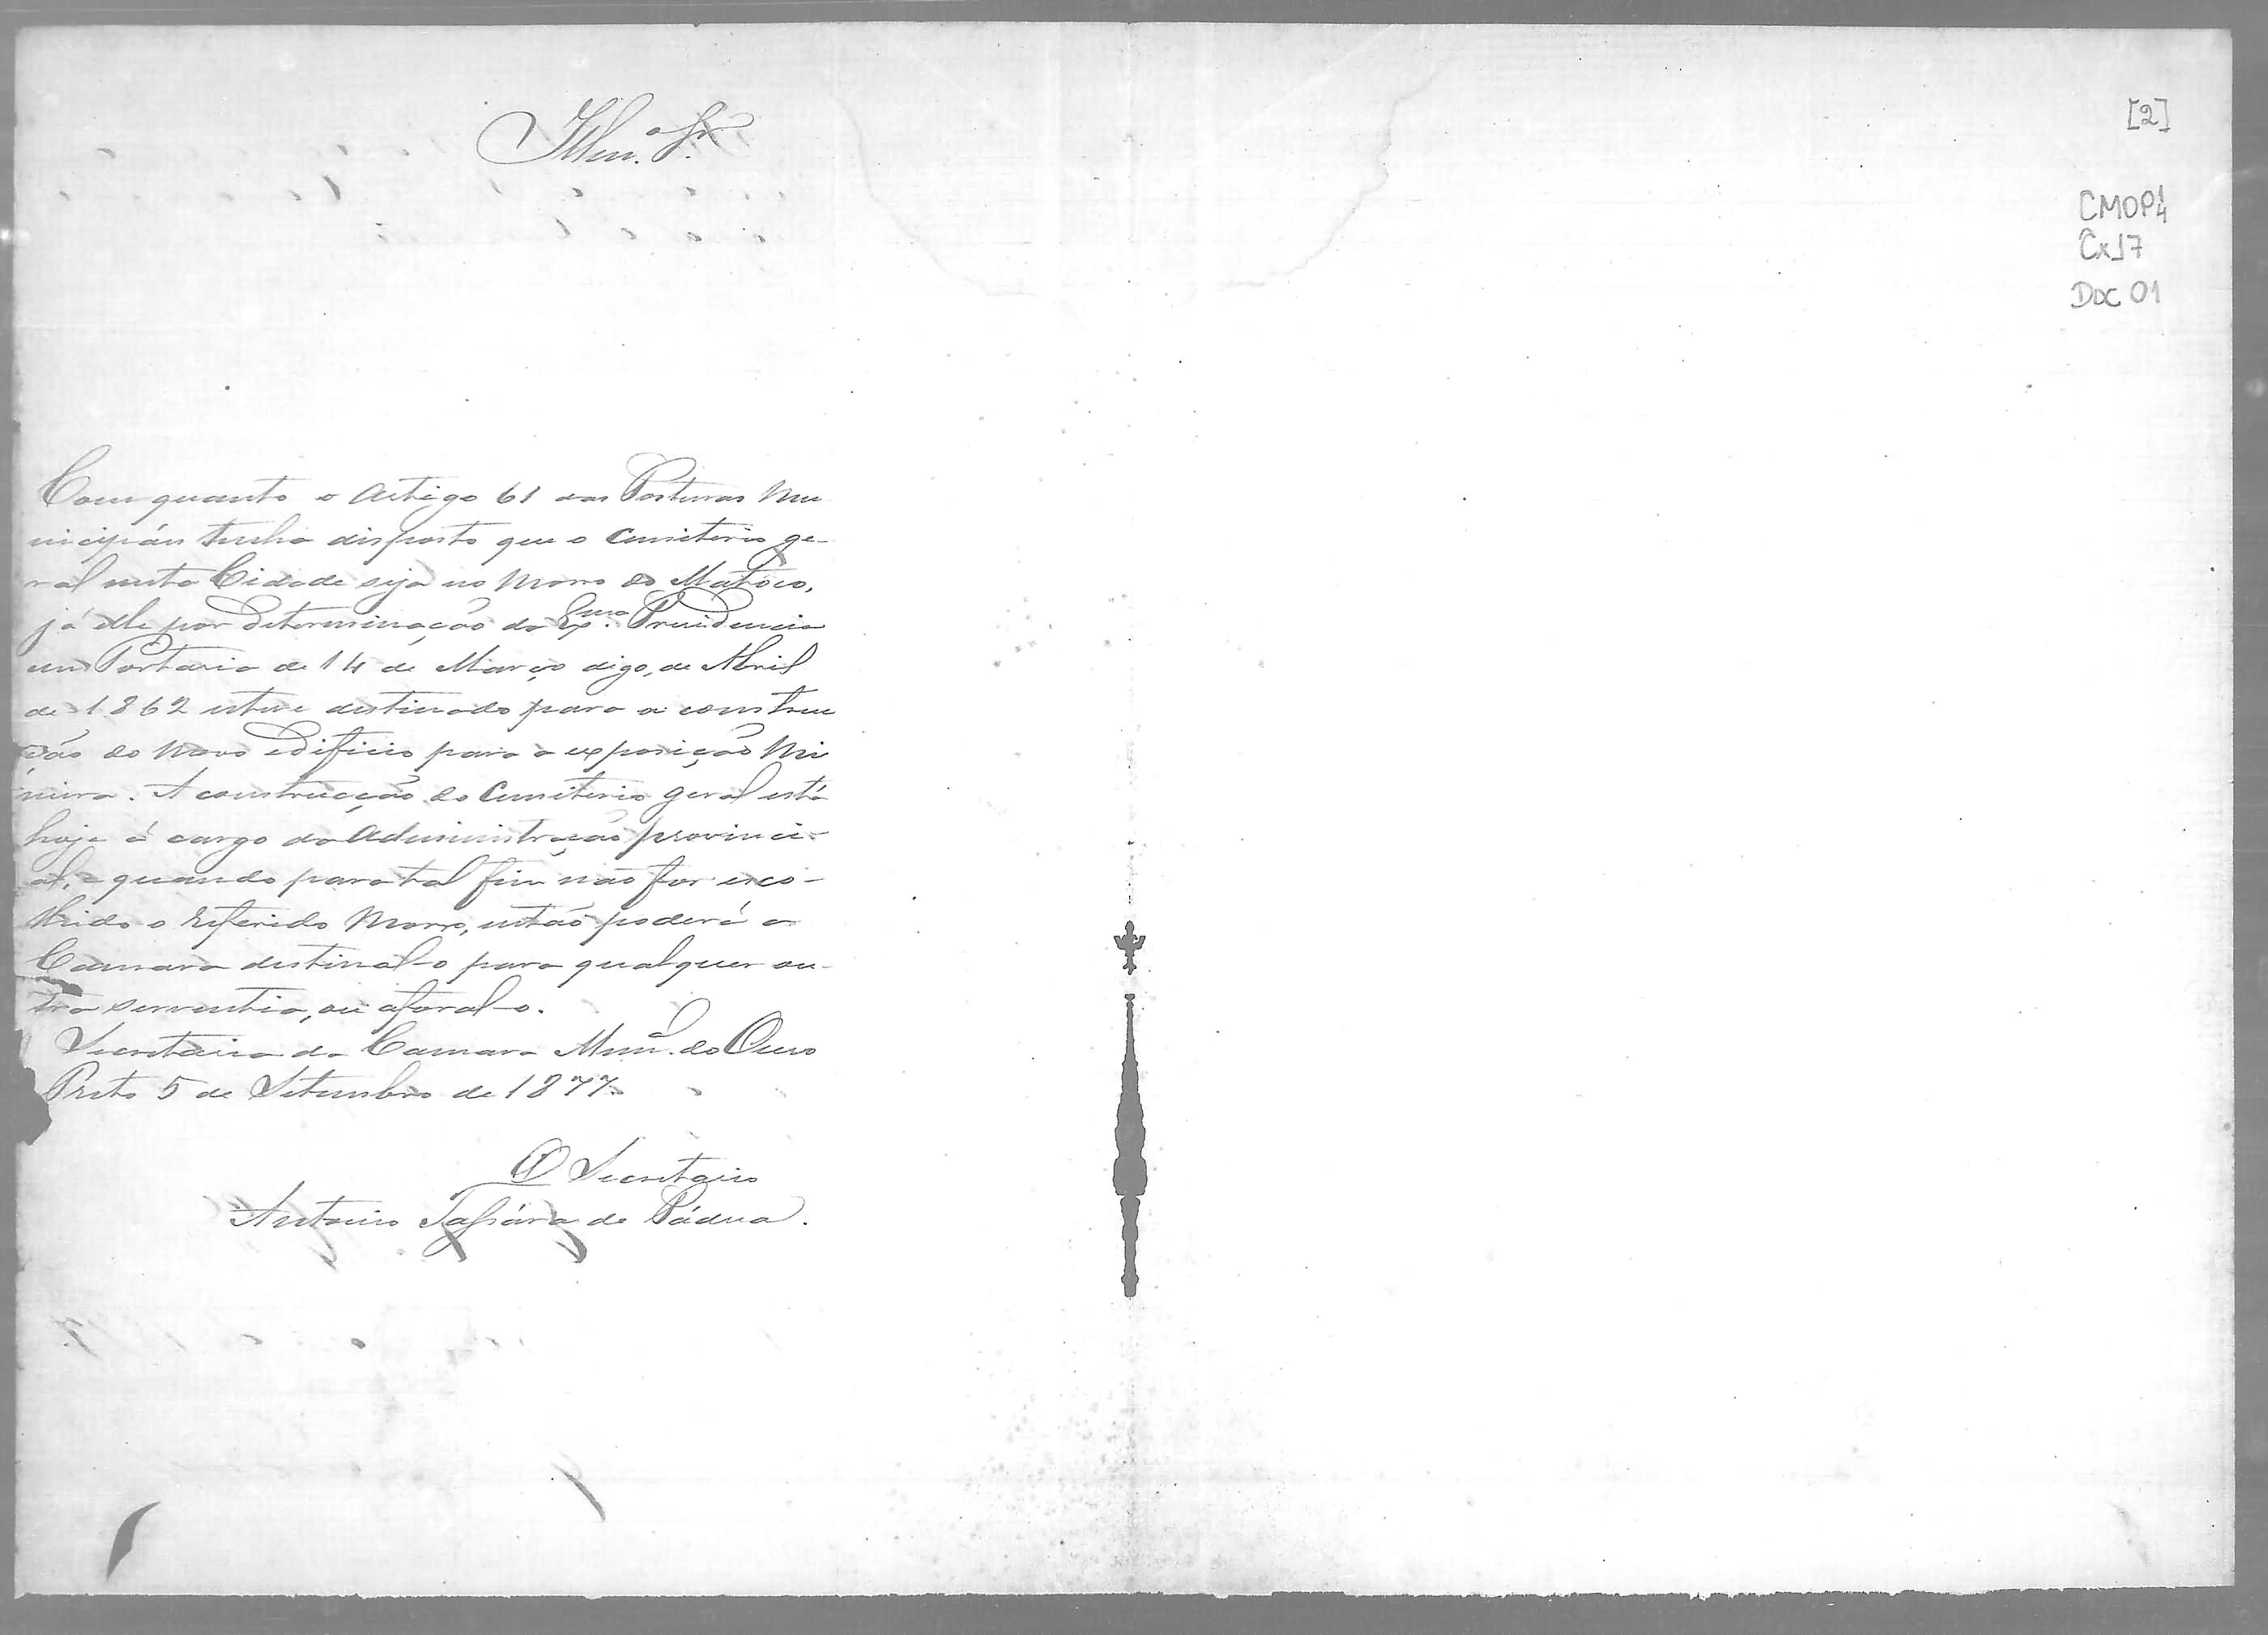 Illm.o Sr.
Com quanto o Artigo 61 das Posturas Mu
nicipáes tenha disposto que o Cemiterio ge-
ral nesta Cidade seja no Morro do
já elle por determinação da Exma. Presidencia
em Portaria de 14 de Março digo, de Abril
de 1862 esteve destinado para a construc
ção do novo edificio para a exposição Mi
neira. A construcção do Cemiterio geral está
hoje á cargo da Administração provinci-
al, e quando para tal fim não for esco-
lhido o referido Morro, então poderá a
Camara destinal-o para qualquer ou-
tra serventia, ou aforal-o.
Secretaria da Camara Mun.al do Ouro
Preto 5 de Setembro de 1877.
O Secretario
Antonio de Pádua.
[2]
CMOP
Cx 17
Doc 01